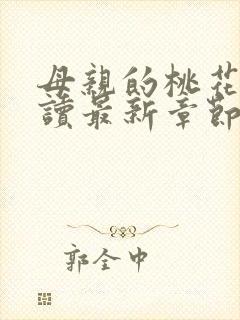 母親的桃花
讀最新章節
郭全中